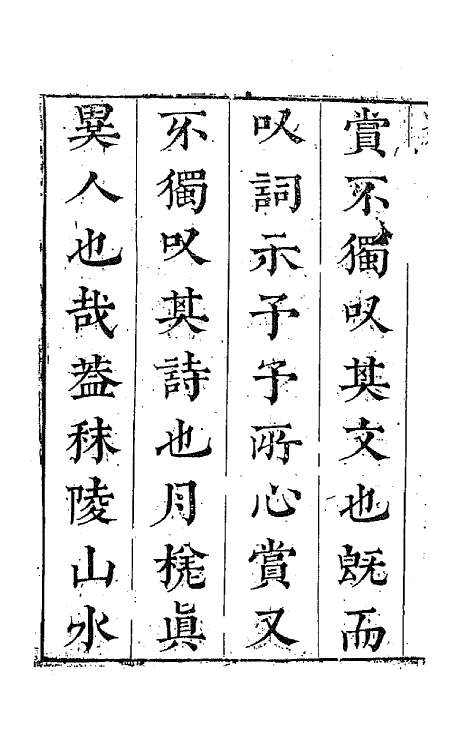 賞不獨以其文也旣而
以詞示予予所心賞又
不獨以其詩也月榥眞
異人也哉葢秣陵山水